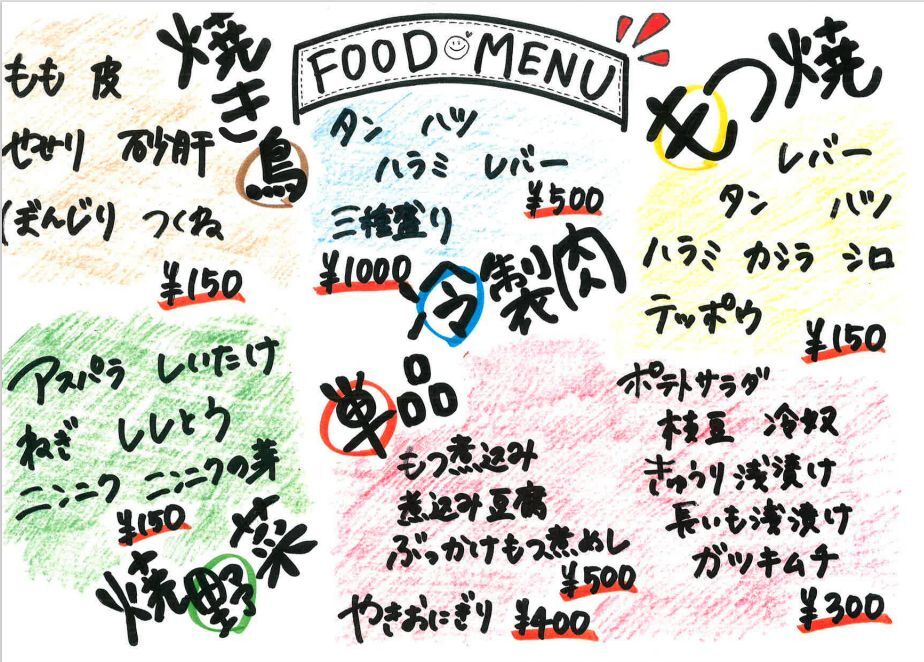 FOOD MENU
焼き鳥
もも 皮
せせり 砂肝
ぼんじり つくね
¥150
タン ハツ
ハラミ レバー
¥500
三種盛り
¥1000
冷製肉
もつ焼
レバー
タン ハツ
ハラミ カシラ シロ
テッポウ
¥150
アスパラ しいたけ
ねぎ ししとう
ニンニク ニンニクの芽
¥150
焼野菜
単品
もつ煮込み
煮込み豆腐
ぶっかけもつ煮めし
¥500
やきおにぎり ¥400
ポテトサラダ
枝豆 冷奴
きゅうり浅漬け
長いも浅漬け
ガツキムチ
¥300